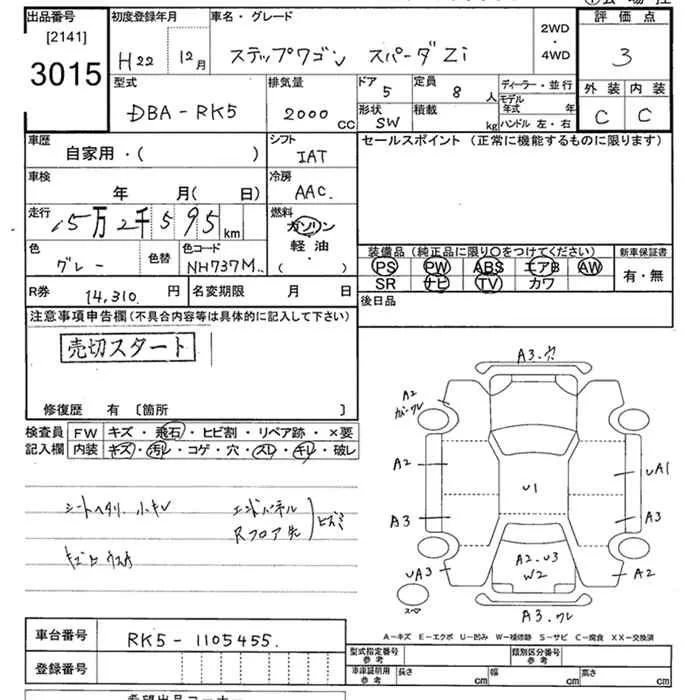 出品番号 初度登録年月 車名・グレード 2WD・4WD 評価点
[2141] H22 12月 ステップワゴン スパーダZi 3
3015
型式 排気量 ドア 5 定員 8人 ディーラー・並行 外装 内装
DBA-RK5 2000cc 形状 SW 積載 kg モデル年式 年 C C
ハンドル 左・右
車歴 シフト セールスポイント (正常に機能するものに限ります)
自家用・( ) IAT
車検 冷房
年 月( 日) AAC.
走行 燃料
15万2千595km ガソリン
色 色替 色コード 軽油 装備品 (純正品に限り〇をつけてください) 新車保証書
グレー NH737M ・( ) PS PW ABS エアB AW 有・無
SR ナビ TV カワ
R券 14,310.円 名変期限 月 日 後日品
注意事項申告欄(不具合内容等は具体的に記入して下さい)
売切スタート
修復歴 有 〔箇所 〕
検査員 FW キズ・飛石・ヒビ割・リペア跡・×要
記入欄 内装 キズ・汚レ・コゲ・穴・スレ・キレ・破レ
シートヘタリ 小キレ エンドパネル
Rフロア先
A3.穴
A2
A2 U1 UA1
A3 A3
A2.U3
W2
UA3 A2
スペア A3.ワレ
A-キズ E-エクボ U-凹み W-補修跡 S-サビ C-腐食 XX-交換済
車台番号 RK5-1105455. 型式指定番号 参考 類別区分番号 参考
登録番号 車庫証明用 参考 長さ cm 幅 cm 高さ cm
希望出品コーナー